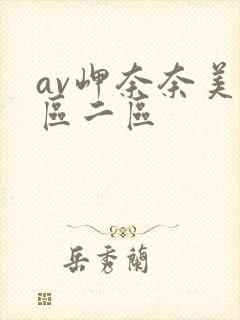 av岬奈奈美
區二區
岳秀蘭